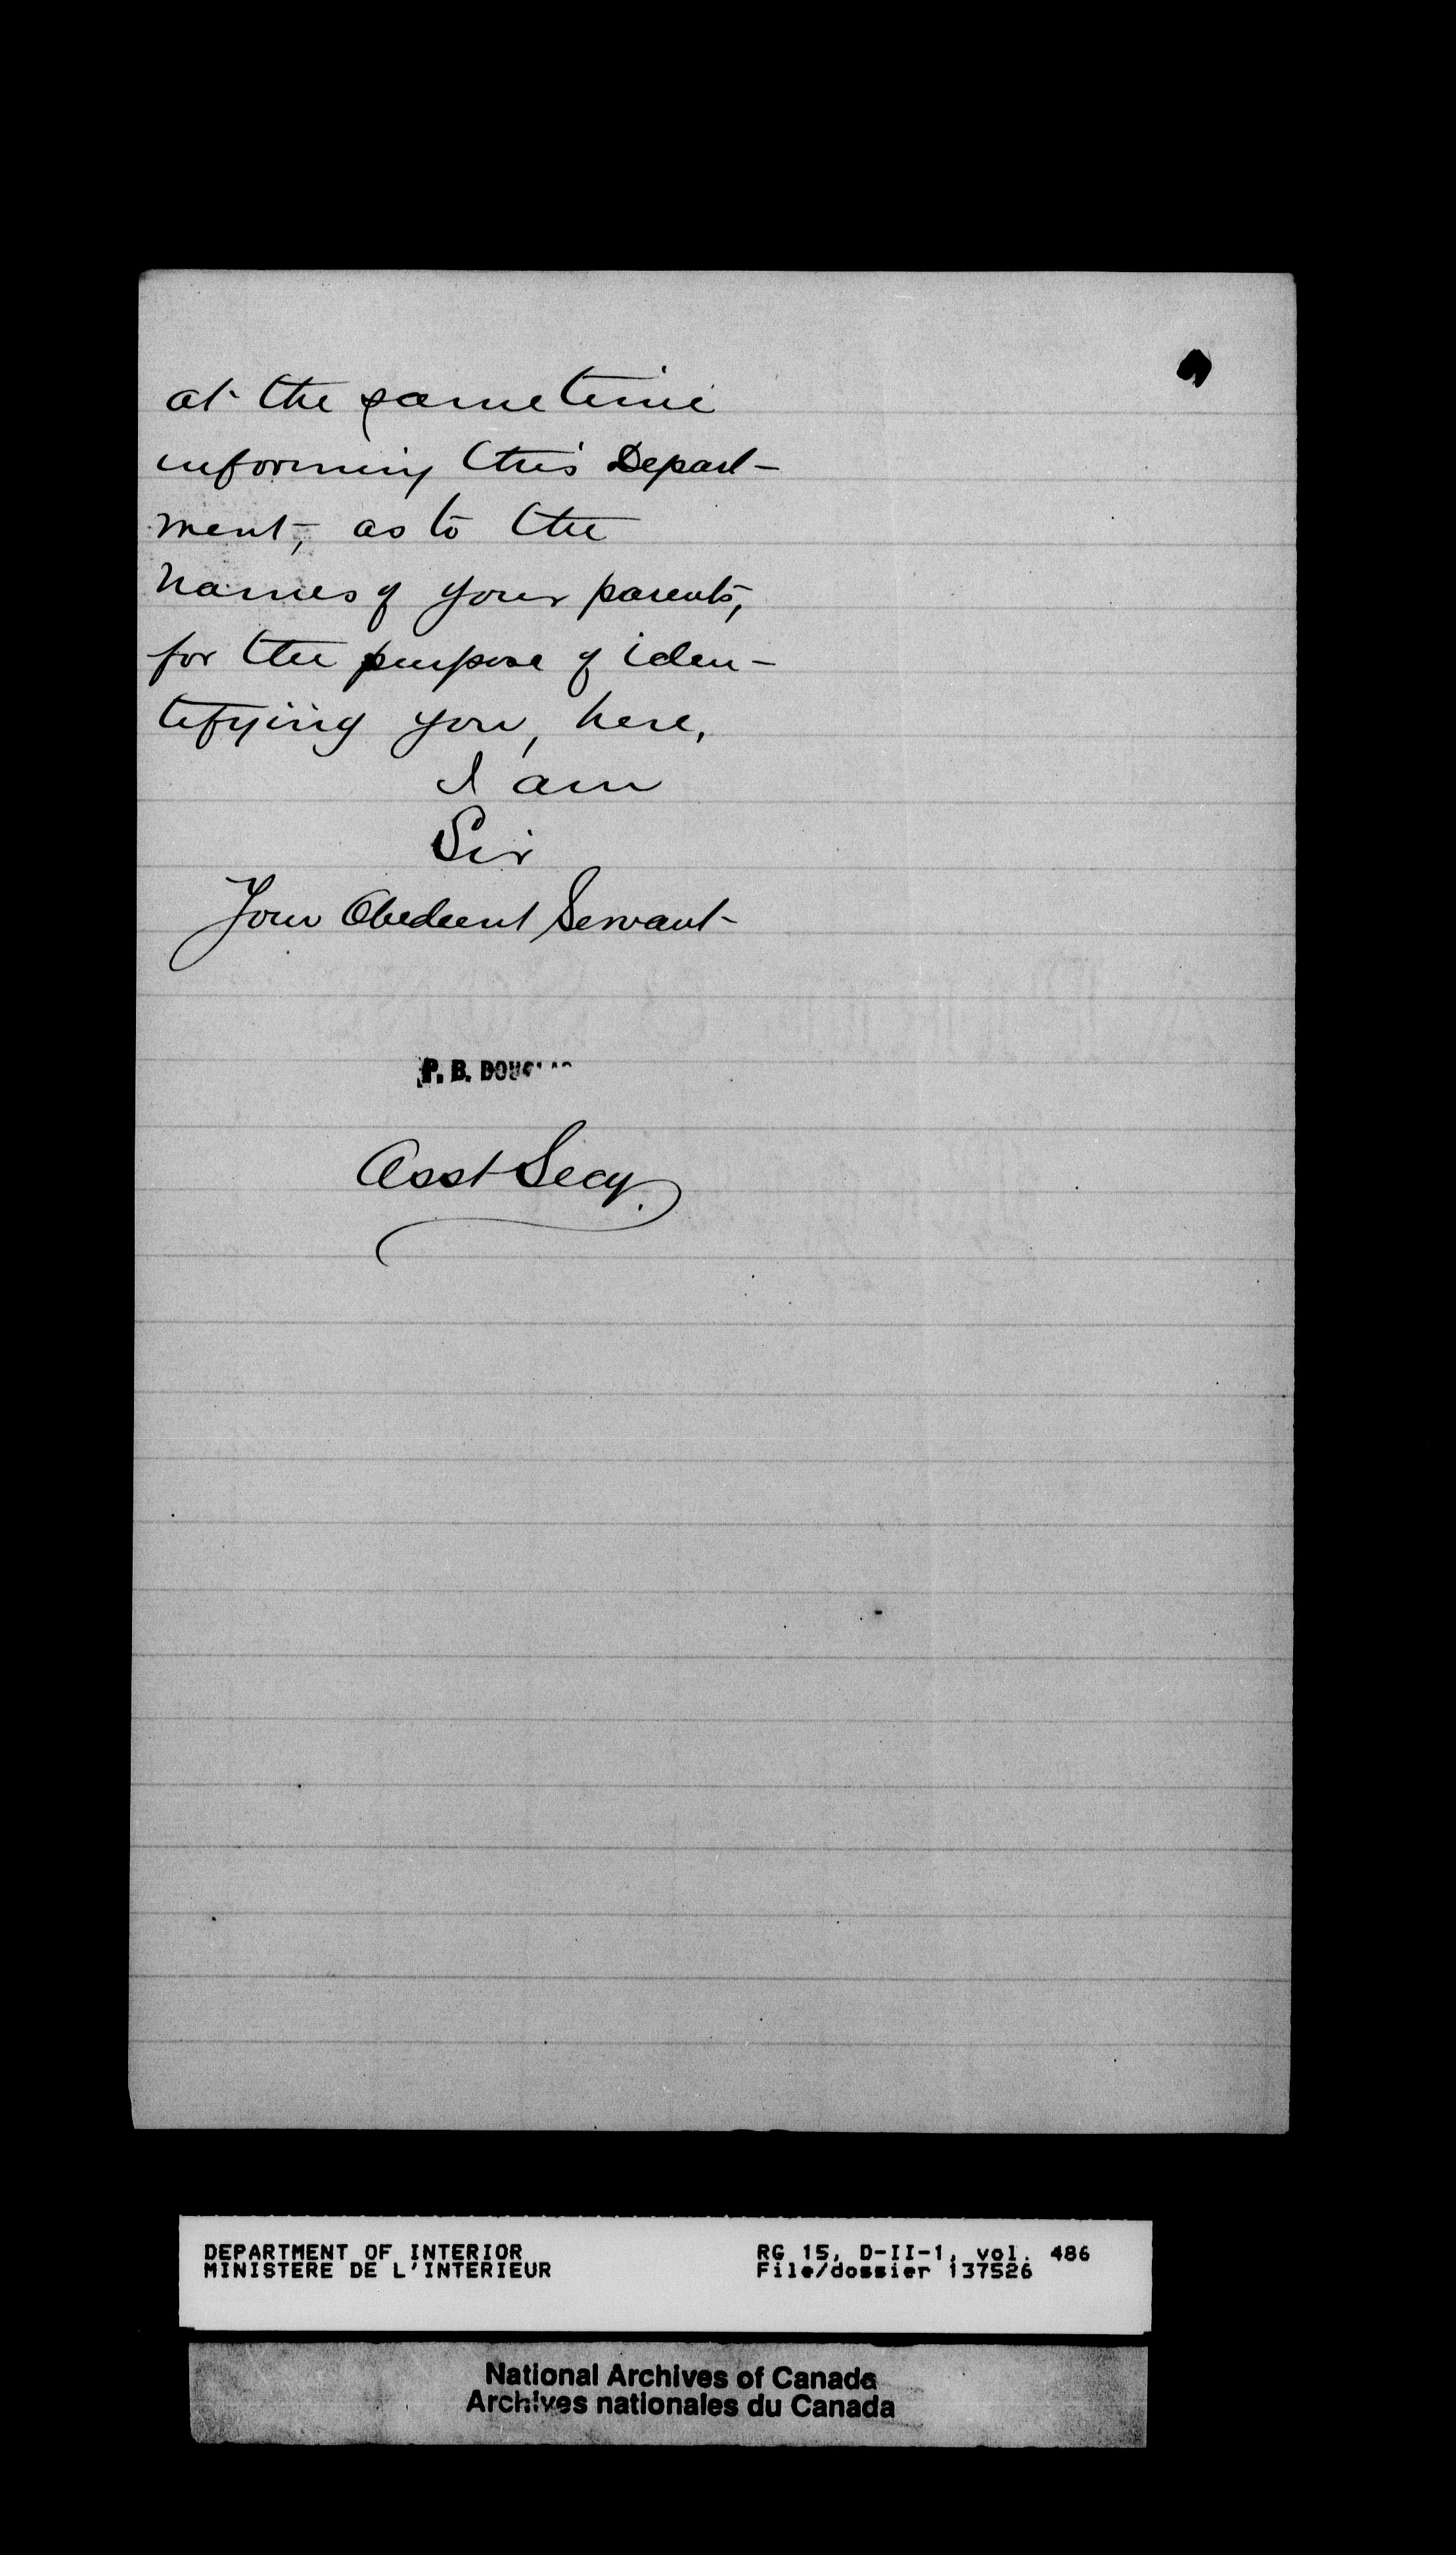 at the same time
informing this Depart-
ment, as to the
names of your parents,
for the purpose of iden-
tifying you, here,
I am
Sir
Your Obedient Servant
P. B. DOUGLAS
Asst Secy.
DEPARTMENT OF INTERIOR RG 15, D-II-1, vol. 486
MINISTERE DE L'INTERIEUR File/dossier 137526
National Archives of Canada
Archives nationales du Canada